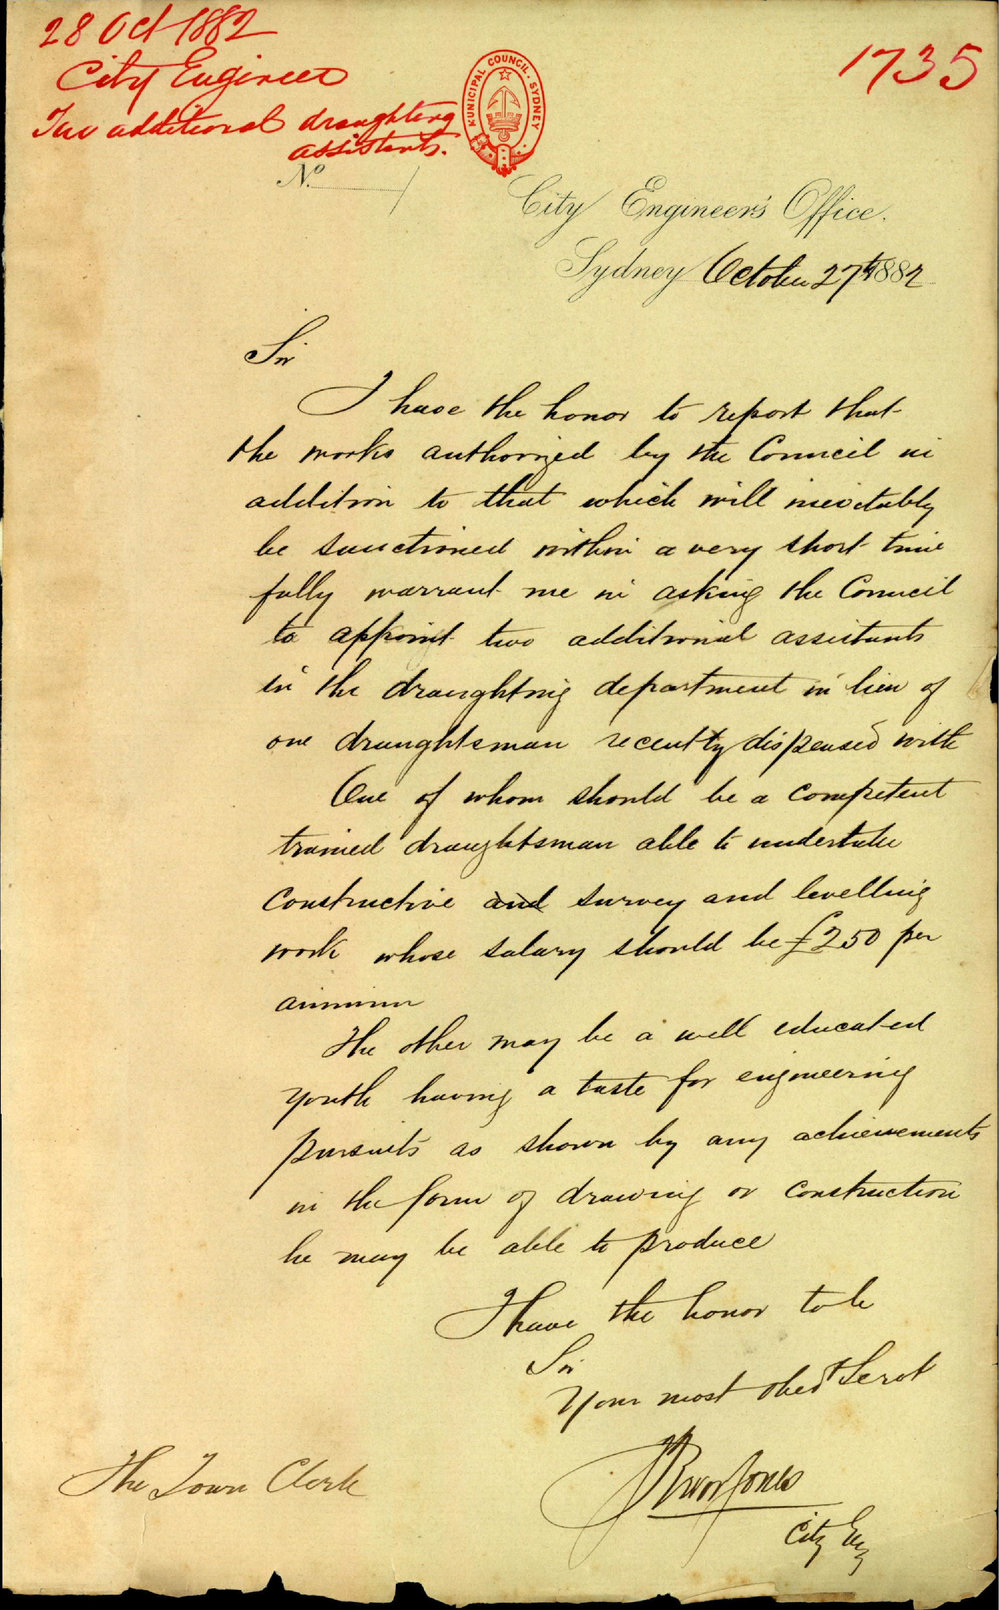 28 Oct 1882
City Engineer
Two additional draughting
assistants.
1735
MUNICIPAL COUNCIL. SYDNEY
No.
City Engineer's Office.
Sydney October 27th 1882
Sir
I have the honor to report that
the works authorized by the Council in
addition to that which will inevitably
be sanctioned within a very short time
fully warrant me in asking the Council
to appoint two additional assistants
in the draughting department in lieu of
one draughtsman recently dispensed with
One of whom should be a competent
trained draughtsman able to undertake
Constructive and survey and levelling
work whose salary should be £250 per
annum
The other may be a well educated
youth having a taste for engineering
pursuits as shown by any achievements
in the form of drawing or construction
he may be able to produce
I have the honor to be
Sir
Your most obedt Servt
Trevor Jones
City Eng
The Town Clerk